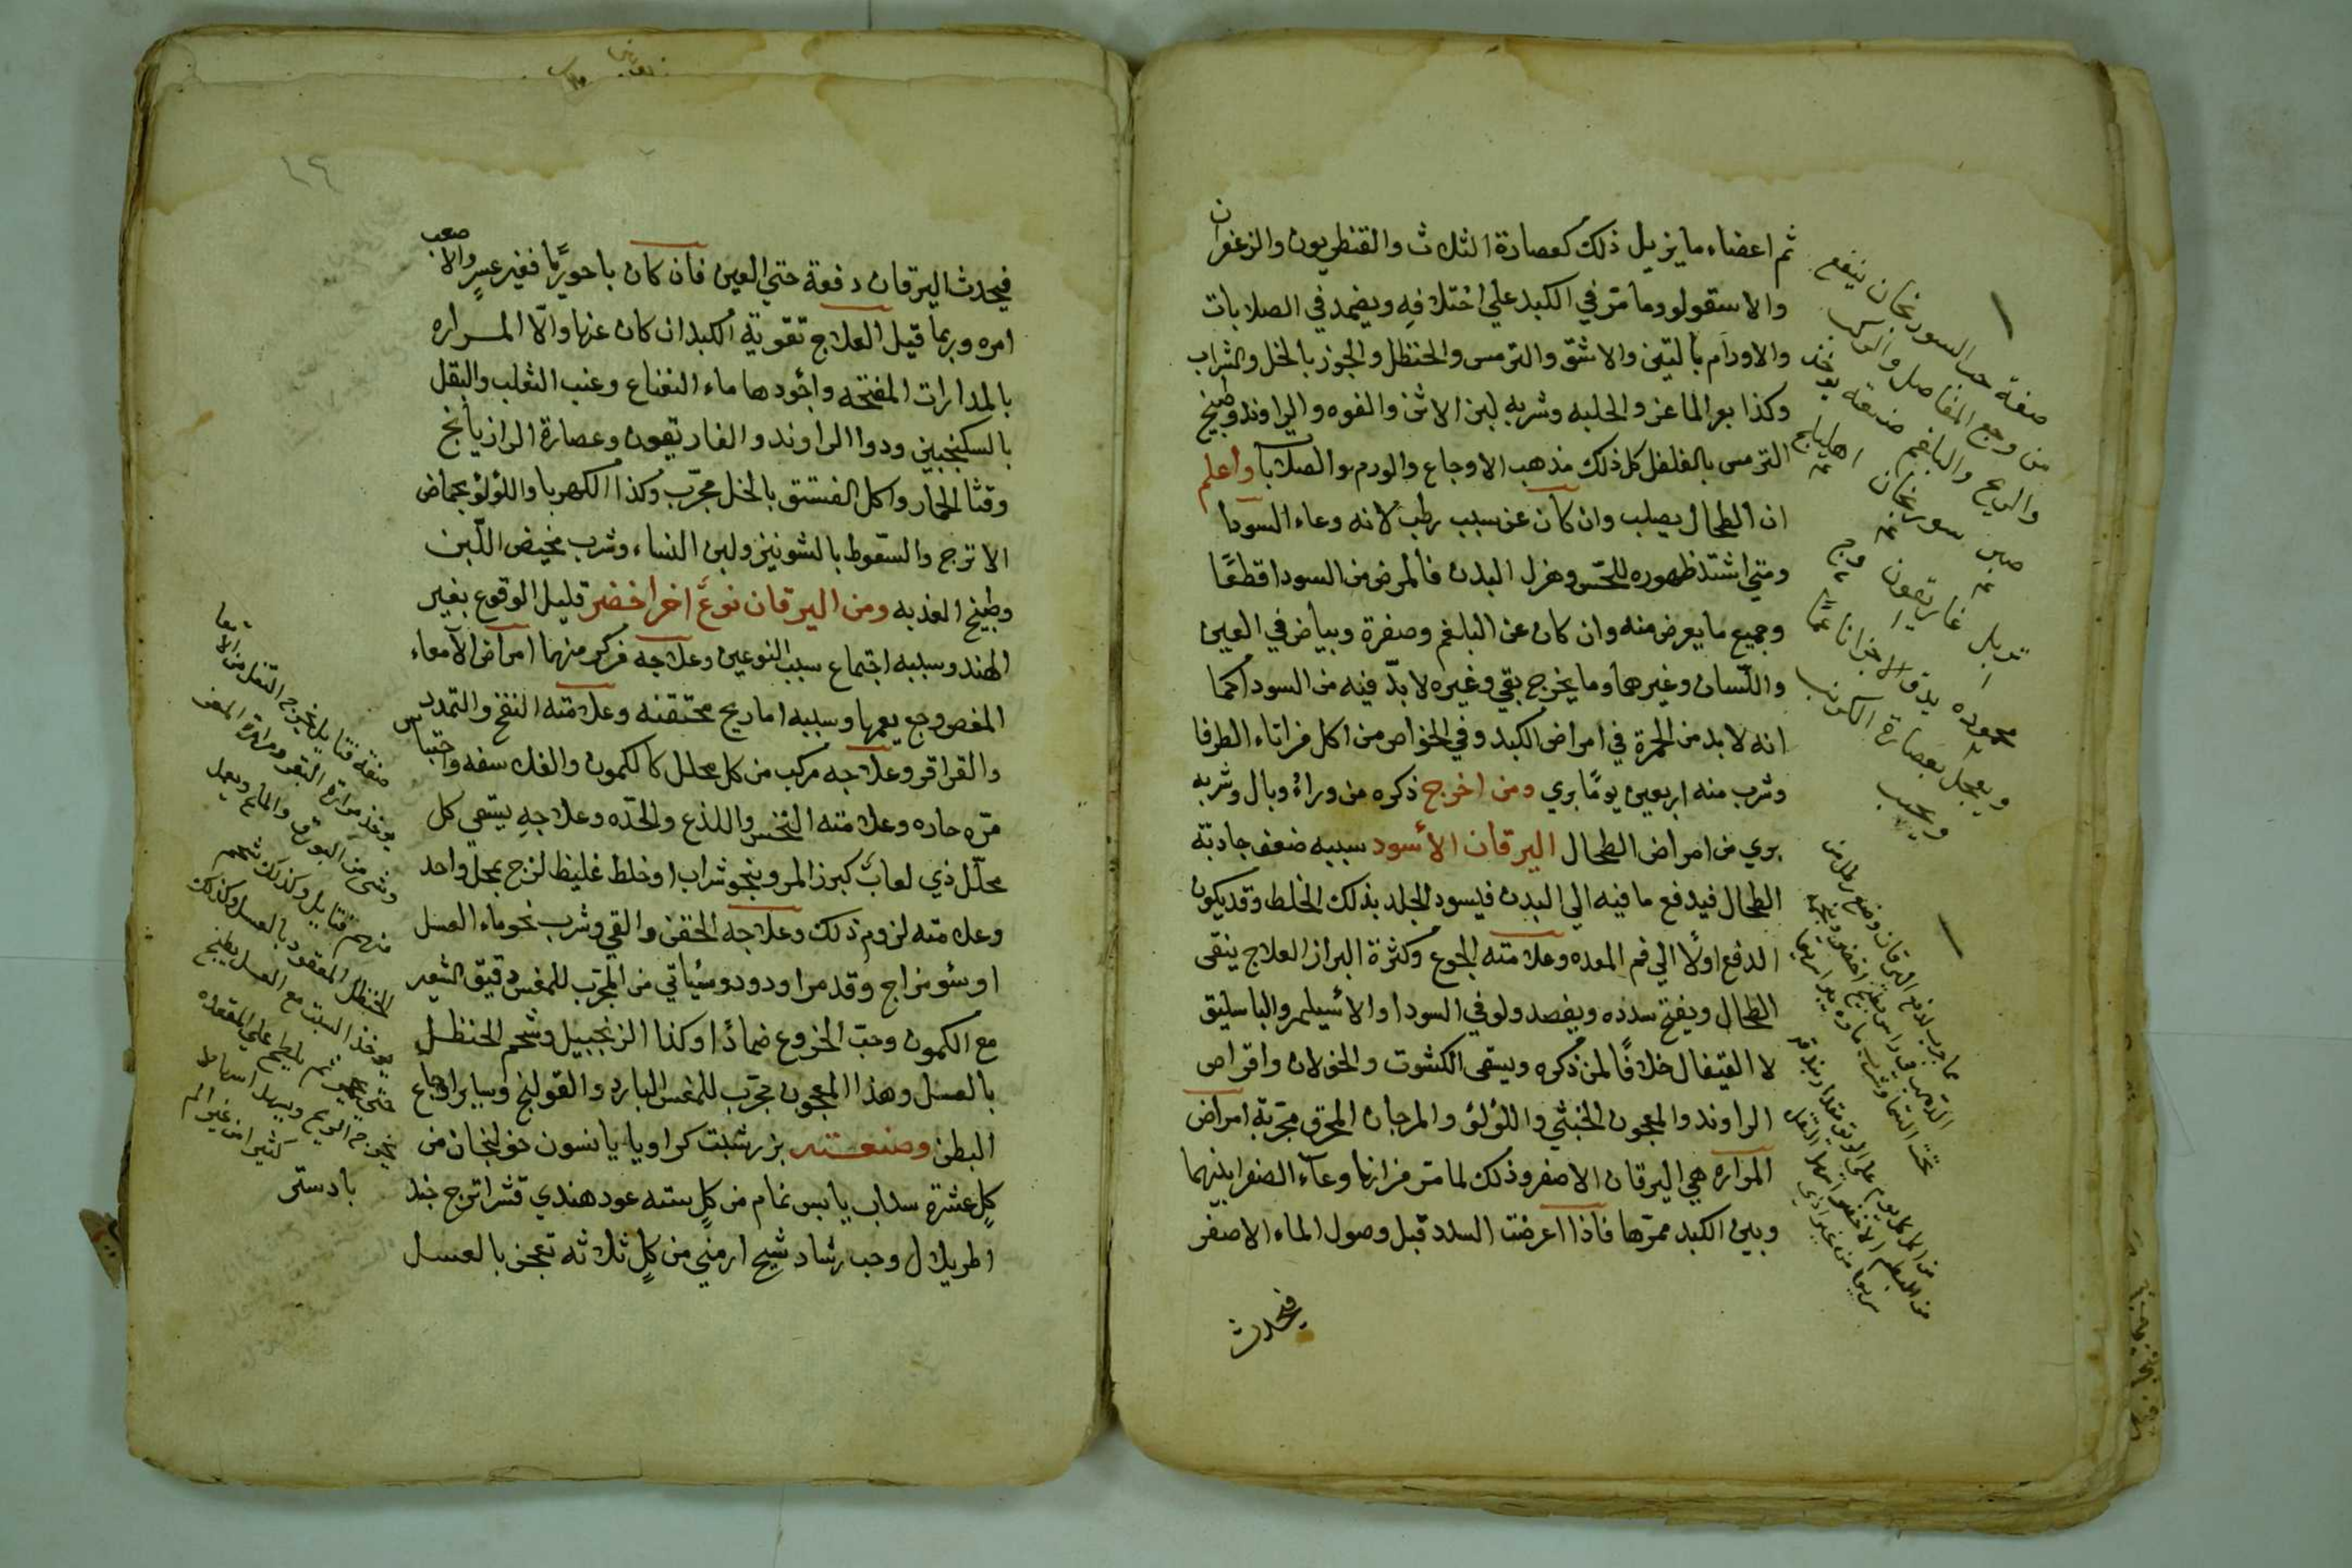 ثم اعضاء ما يزيل ذلك كعصارة الثلاث والقنطريون والزعفران
والاسقولو وما مر في الكبد علي اختلافه ويضمد في الصلابات
والاورام بالتين والاشق والترمس والحنظل والجوز بالخل والشراب
وكذا بعر الماعز والحلبه وشربه لبن الاتن والفوه والراوند وطبيخ
الترمس بالفلفل كل ذلك مذهب الاوجاع والورم والصلابا واعلم
ان الطحال يصلب وان كان عن سبب رطب لانه وعاء السودا
ومتي اشتد ظهوره للحس وهزل البدن فالمرض من السودا قطعًا
وجميع ما يعرض منه وان كان عن البلغم وصفرة وبياض في العين
واللسان وغيرها وما يخرج بقي وغيره لا بد فيه من السودا كما
انه لا بد من الحمرة في امراض الكبد وفي الخواص من اكل في اناء الطرفا
وشرب منه اربعين يومًا بري ومن اخرج ذكره من وراءُ وبال وشربه
بري من امراض الطحال اليرقان الأسود سببه ضعف جاذبة
الطحال فيدفع ما فيه الي البدن فيسود الجلد بذلك الخلط وقد يكون
الدفع اولًا الي فم المعده وعلامته الجوع وكثرة البراز العلاج ينقى
الطحال ويفتح سدده ويفصد ولو في السودا والأسيلم والباسليق
لا القيفال خلافًا لمن ذكره ويسقى الكشوت والخولان واقراص
الراوند والمعجون الخبثي واللؤلؤ والمرجان المحرق مجربة امراض
المراره هي اليرقان الاصفر وذلك لما مر من انها وعاء الصفرا بينهما
وبين الكبد ممرها فاذا اعرضت السدد قبل وصول الماء الاصفر
فيحدث
صفة حب السورنجان ينفع
من وجع المفاصل والركب
والريح والبلغم صنعة يوخذ
صبر سورنجان اهليلج
تربل غاريقون
محموده يدق الاجزا ناعمًا
ويعجل بعصارة الكرنب
ويحبب
١٤
فيحدث اليرقان دفعة حتي العين فان كان باحوريًا فغير عسرٍ والا صعب
امره وربما قيل العلاج تقوية الكبد ان كان عنها والّا المراره
بالمدارات المفتحه واجودها ماء النعناع وعنب الثعلب والبقل
بالسكنجبين ودوا الراوند والغاريقون وعصارة الرازيانج
وقثا الحمار واكل الفستق بالخل مجرّب وكذا الكهربا واللؤلؤ بحماض
الاترج والسّعوط بالشونيز ولبن النساء وشرب مخيض اللّبن
وطبيخ العذبه ومن اليرقان نوعٌ اخر اخضر قليل الوقوع بغير
الهند وسببه اجتماع سبب النوعين وعلاجه مركب منهما امراض الأمعاء
المغص وجع يعمها وسببه اما ريح محتقنه وعلامته النفخ والتمدد
والقراقر وعلاجه مركب من كل محلل كالكمون والفلاسفه واحتباس
مرّه حاده وعلامته النخس واللذع والحدّه وعلاجهِ يسقي كل
محلّل ذي لعابٍ كبزر المر وبنحو شراب او خلط غليظ لزج بمحل واحد
وعلامته لزوم ذلك وعلاجه الحقن والقي وشرب نحو ماء العسل
او سؤ مزاج وقد مر او دود وسيُأتي من المجرّب للمغس دقيق الشعير
مع الكمون وحبّ الخروع ضمادًا وكذا الزنجبيل وشحم الحنظل
بالعسل وهذا المعجون مجرّب للمغس البارد والقولنج وساير اوجاع
البطن وصنعته بزر شبت كراويا يانسون خولنجان من
كلٍ عشرة سداب يابس نمام من كلٍ سته عود هندي قشر اترج جند
اطريلال وحب رشاد شيح ارمني من كلٍ ثلاثه تعجن بالعسل
صفة فتايل يخرج الثفل من الامعا
بادستر